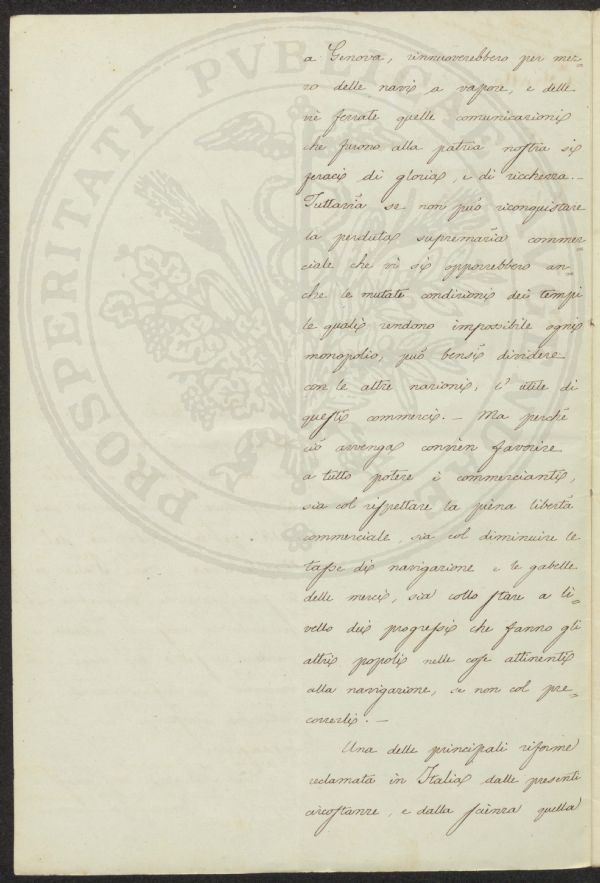 a Genova, rinnuoverebbero per mez=
zo delle navi a vapore, e delle
vie ferrate quelle comunicazioni
che furono alla patria nostra sì
feraci di gloria, e di ricchezza. —
Tuttavia se non può riconquistare
la perduta supremazia commer=
ciale che vi si opporrebbero an=
che le mutate condizioni dei tempi
le quali rendono impossibile ogni
monopolio, può bensì dividere
con le altre nazioni, l'utile di
questi commerci. — Ma perché
ciò avvenga convien favorire
a tutto potere i commercianti,
sia col rispettare la piena libertà
commerciale, sia col diminuire le
tasse di navigazione e le gabelle
delle merci, sia collo stare a li=
vello dei progressi che fanno gli
altri popoli nelle cose attinenti
alla navigazione, se non col pre=
correrli. —
Una delle principali riforme
reclamata in Italia dalle presenti
circostanze, e dalla scienza quella
PROSPERITATI PVBLICAE